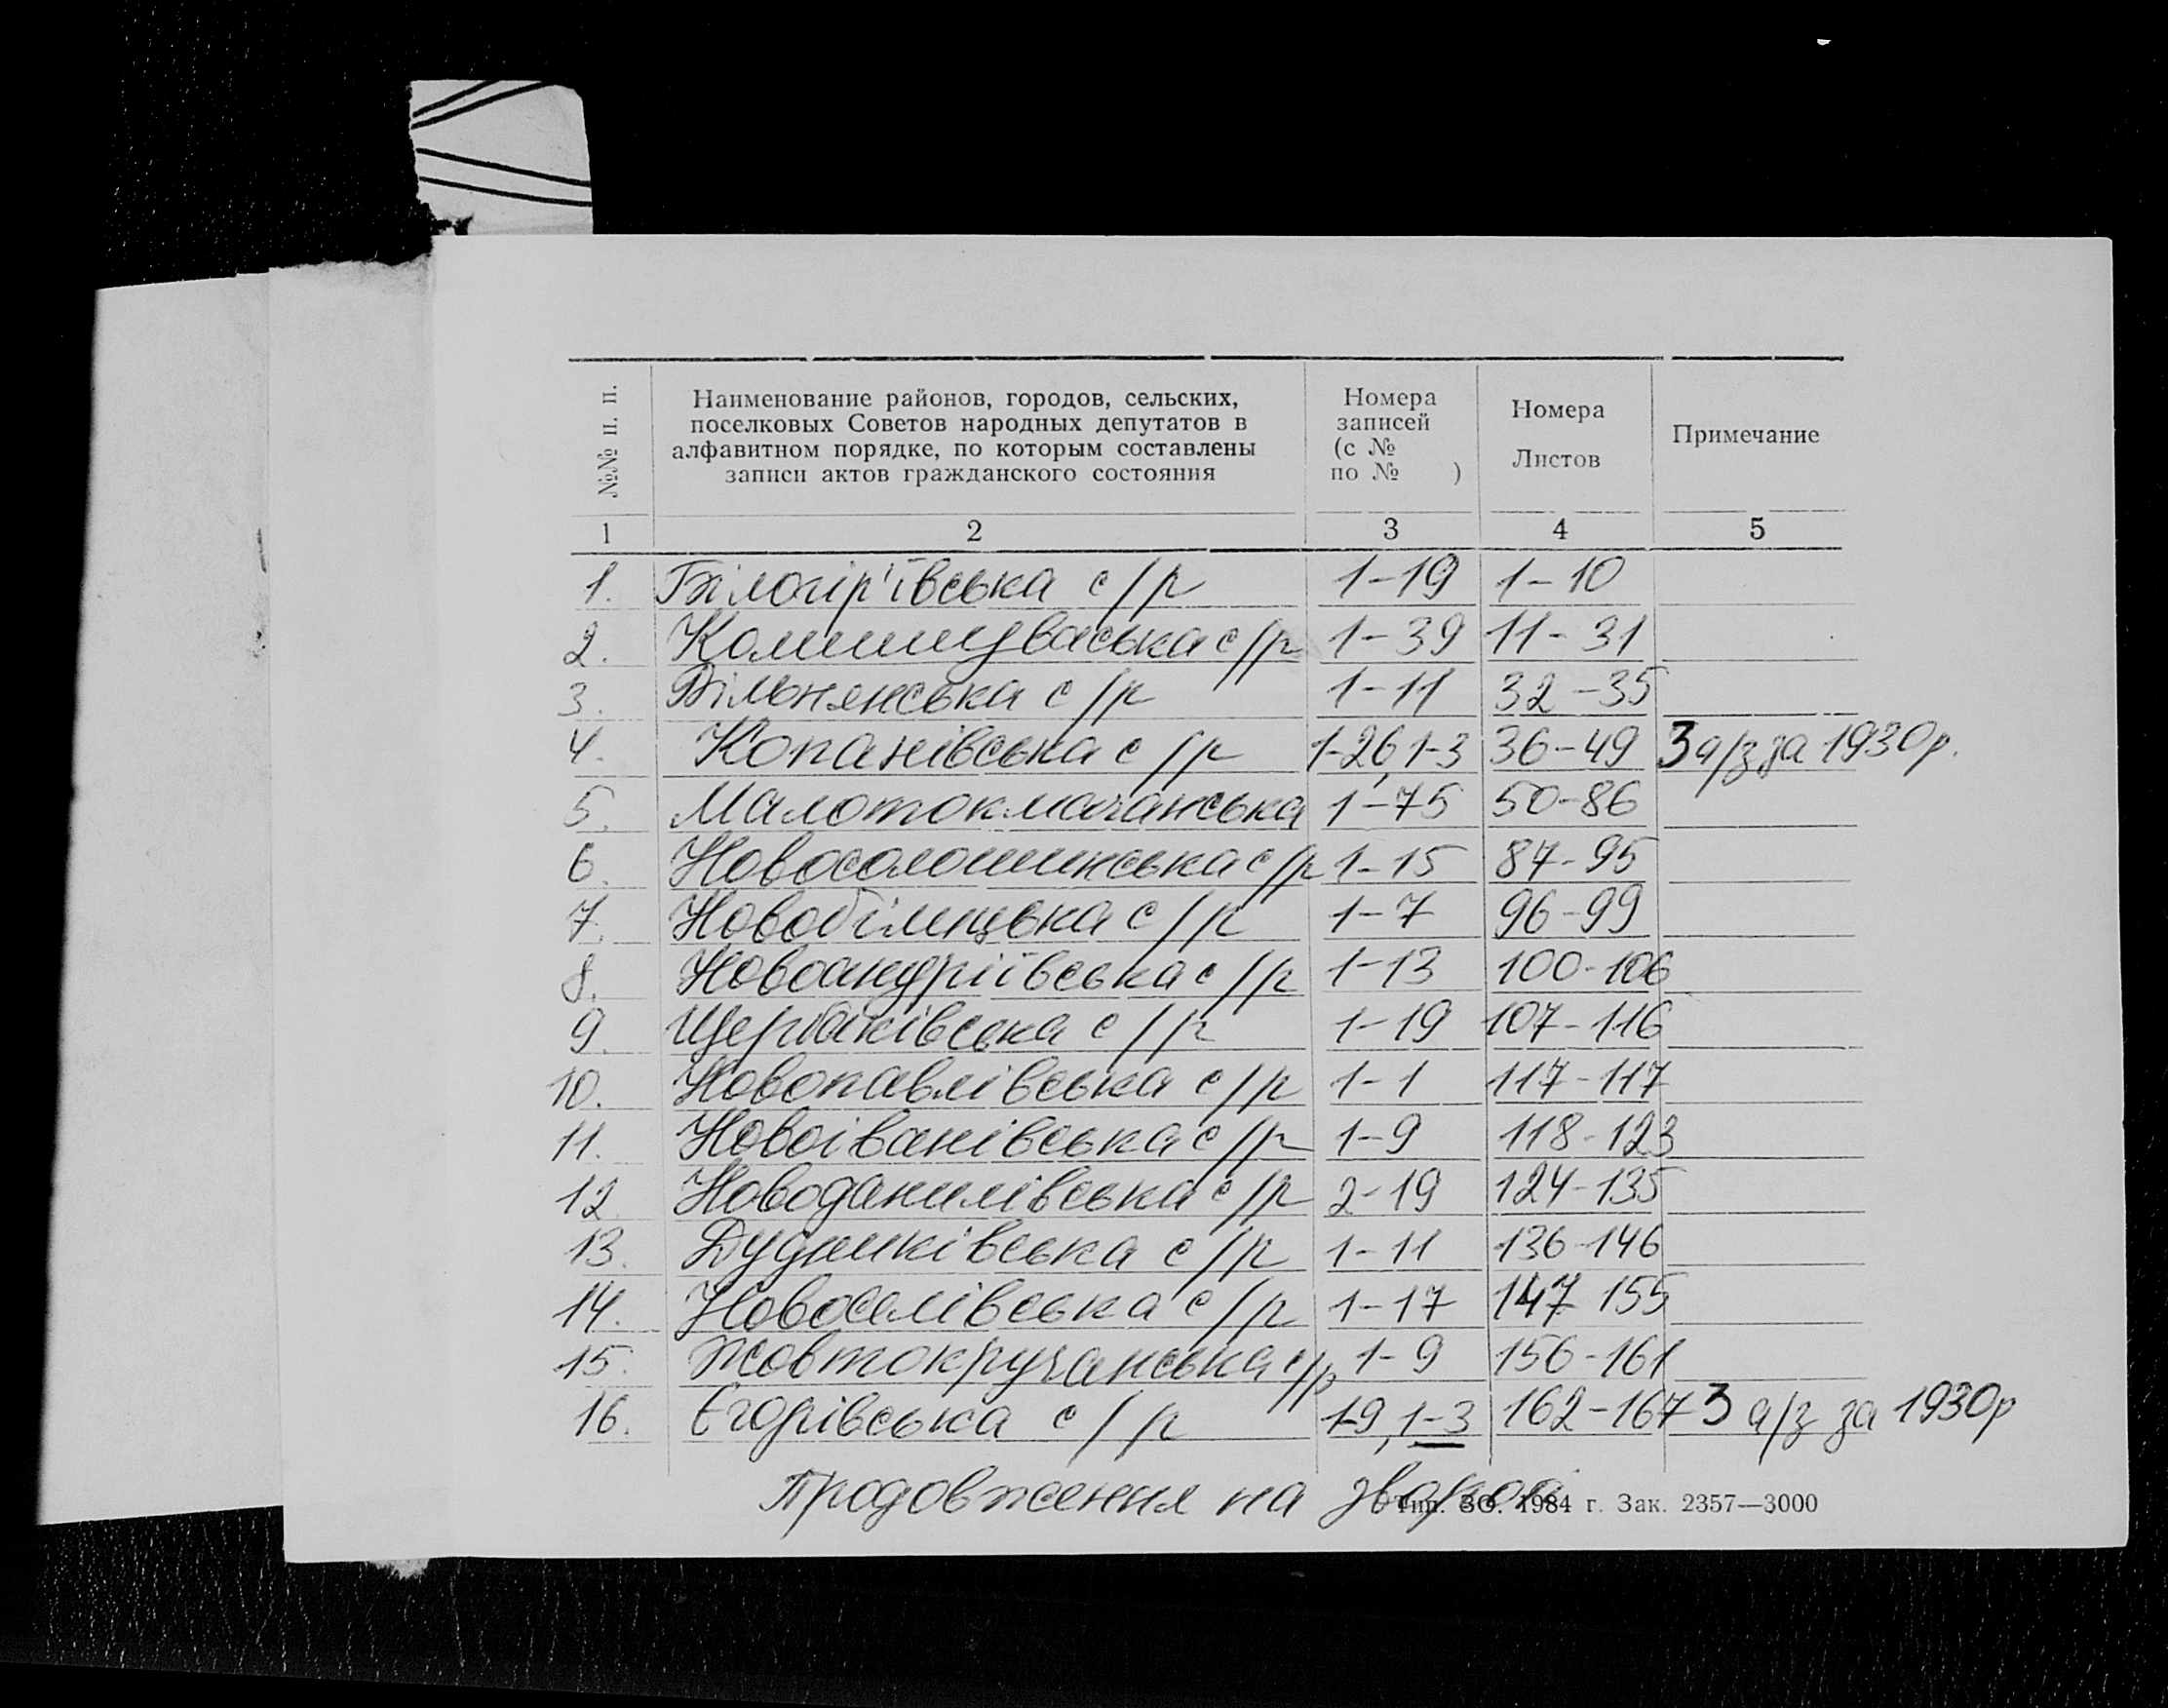 №№ п. п.
Наименование районов, городов, сельских,
поселковых Советов народных депутатов в
алфавитном порядке, по которым составлены
записи актов гражданского состояния
Номера
записей
(с №
по № )
Номера
Листов
Примечание
1 2 3 4 5
1. Білогір'ївська с/р 1-19 1-10
2. Комишуваська с/р 1-39 11-31
3. Вільнянська с/р 1-11 32-35
4. Копанівська с/р 1-26, 1-3 36-49 3 а/з за 1930р.
5. Малотокмачанська 1-75 50-86
6. Новосолошинська с/р 1-15 87-95
7. с/р 1-7 96-99
8. Новоандріївська с/р 1-13 100-106
9. Щербаківська с/р 1-19 107-116
10. Новопавлівська с/р 1-1 117-117
11. Новоіванівська с/р 1-9 118-123
12. Новоданилівська с/р 2-19 124-135
13. с/р 1-11 136-146
14. Новоселівська с/р 1-17 147-155
15. Жовтокручанська с/р 1-9 156-161
16. Єгорівська с/р 1-9, 1-3 162-167 3 а/з за 1930р
Продовження на звороті
Тип. ЗО. 1984 г. Зак. 2357—3000